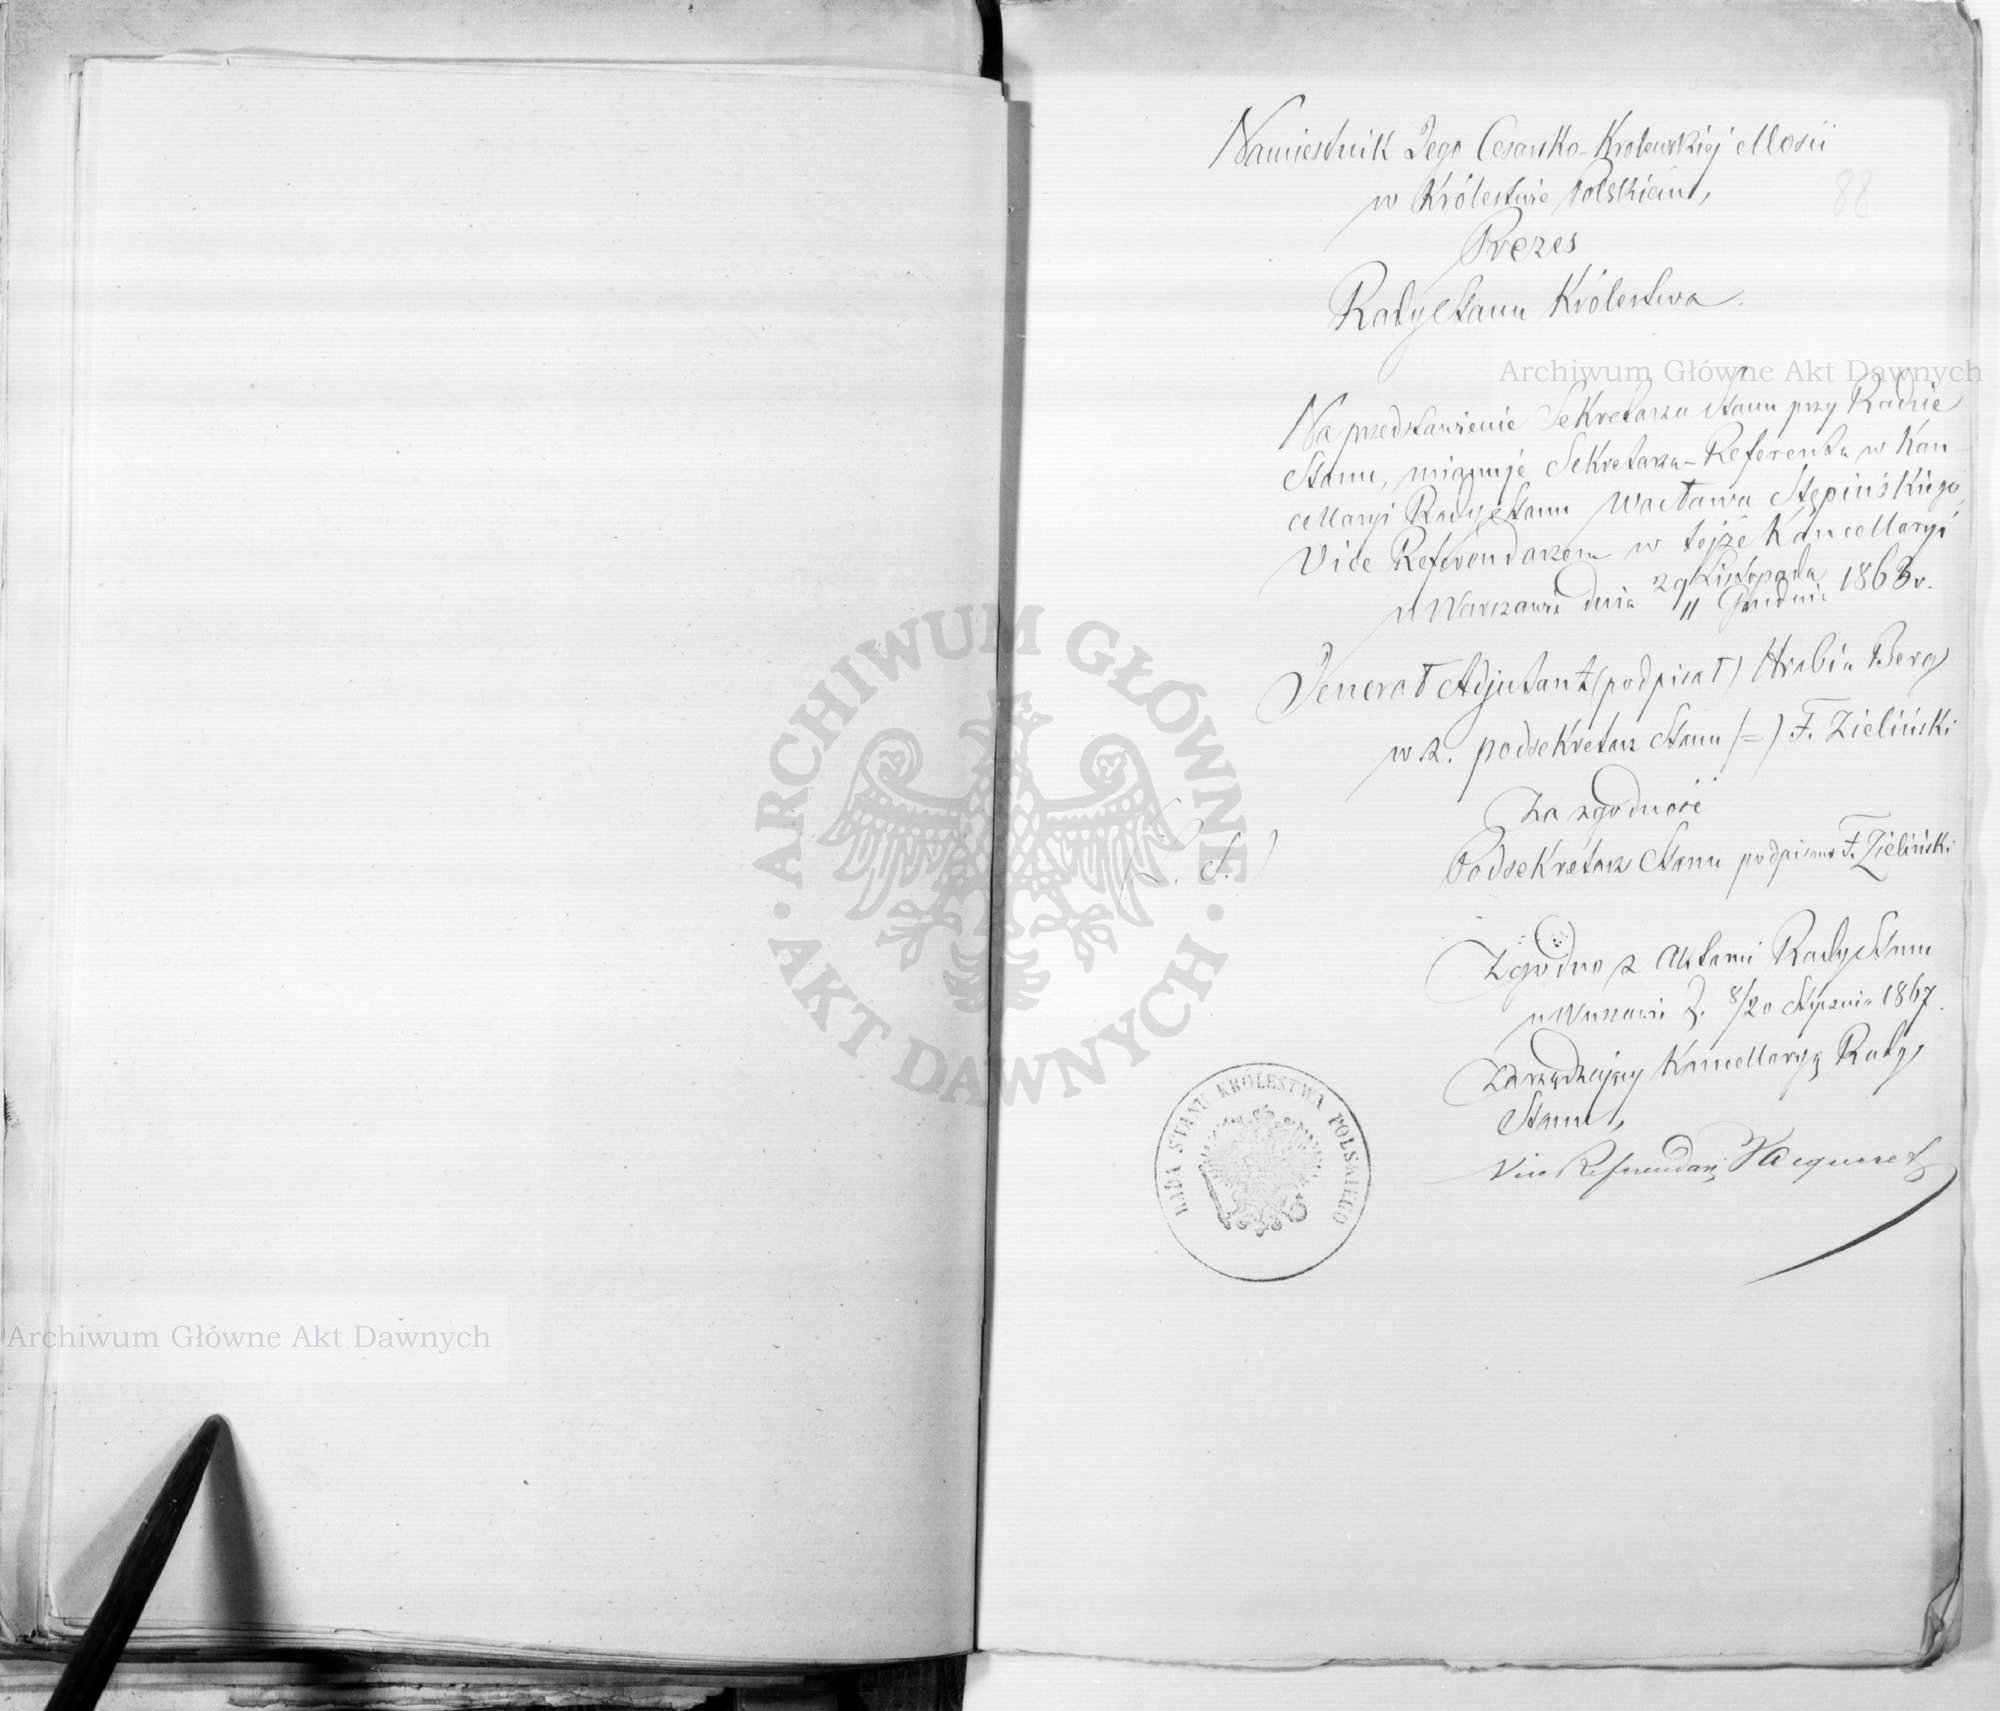 Namiestnik Jego Cesarsko-Królewskiej Mości
88
w Królestwie Polskiém,
Prezes
Rady Stanu Królestwa.
Archiwum Główne Akt Dawnych
Na przedstawienie Sekretarza Stanu przy Radzie
Stanu, mianuje Sekretarza-Referenta w Kan-
cellaryi Rady Stanu Wacława Stępińskiego,
Vice Referendarzem w tejże Kancellaryi
w Warszawie dnia 29 Listopada
11 Grudnia 1863 r.
Jenerał Adjutant (podpisał) Hrabia Berg
w z. podsekretarz Stanu (=) F. Zieliński
Za zgodność
(L. S.)
Podsekretarz Stanu podpisano F. Zieliński
Zgodno z Aktami Rady Stanu
w Warszawie d. 8/20 Stycznia 1867.
Zarządzający Kancellaryą Rady
Stanu,
Vice Referendarz
RADA STANU KRÓLESTWA POLSKIEGO
ARCHIWUM GŁÓWNE
AKT DAWNYCH
Archiwum Główne Akt Dawnych